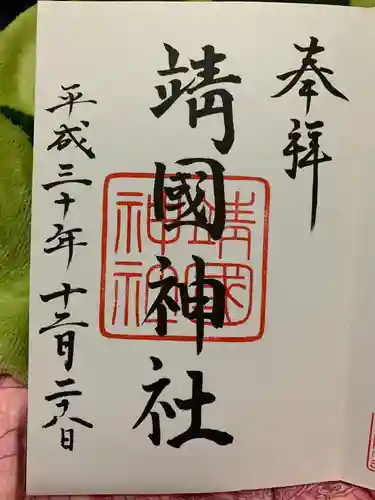 奉拝
靖國神社
平成三十年十二月二十八日
靖國
神社